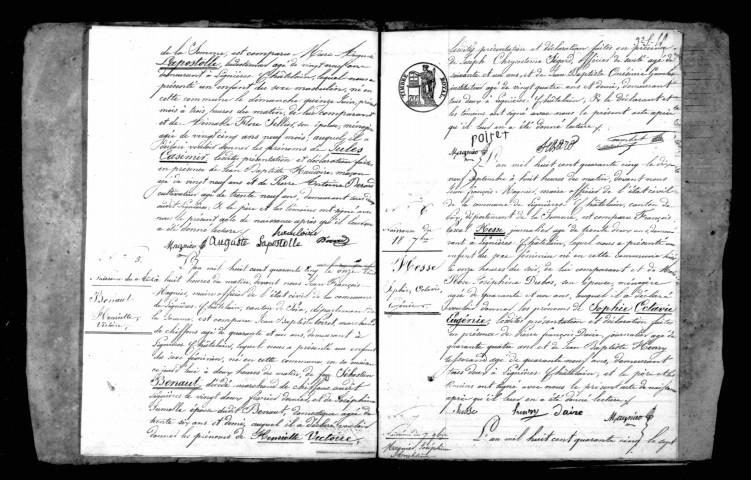 de la Somme, est comparu Marc Auguste
Lapostolle, badestamier agé de vingt neuf ans
demeurant à Lignières Châtelain, lequel nous a
présenté un enfant du sexe masculin, né en
cette commune le dimanche quinze Juin, présent
mois à trois heures du matin, de lui comparant
et de Aimable Flore Tellier, son épouse, ménagère
agée de vingt cinq ans neuf mois, auquel il a
déclaré vouloir donner les prénoms de Jules
Casimir, lesdites présentation et déclaration faites
en présence de Jean Baptiste Haudoire, maçon
agé de vingt neuf ans et de Pierre Antoine
cultivateur agé de trente neuf ans, demeurant tous deux
audit Lignières. & le père et les témoins ont signé avec
nous le présent acte de naissance après qu'il leur en
a été donné lecture
haudoire
Magnier Auguste Lapostolle
5.
Naissance du
Benaut
Henriette
Victoire
L'an mil huit cent quarante cinq le onze
huit heures du matin, devant nous Jean François
Magnier, maire officier de l'état civil de la commune
de Lignières Châtelain, canton de Poix, département de
la Somme, est comparu Jean Baptiste Poiret, marchand
de chiffons agé de quarante et un ans, demeurant à
Lignières Châtelain, lequel nous a présenté un enfant
du sexe féminin, né en cette commune en sa maison
ce jourd'hui à deux heures du matin, de feu Sébastien
Benaut, décédé marchand de chiffons audit
Lignières le vingt deux février dernier, et de Joséphine
Jumelle épouse dudit Benaut, domestique agée de
trente six ans et demi, auquel il a déclaré vouloir
donner les prénoms de Henriette Victoire,
TIMBRE ROYAL
lesdites présentation et déclaration faites en présence
de Joseph Chrysostome Ficard, officier de santé agé de
soixante et un ans, et de Jean Baptiste Onésime
instituteur agé de vingt quatre ans et demi, demeurant
tous deux à Lignières Châtelain, & le déclarant et
les témoins ont signé avec nous le présent acte après
qu'il leur en a été donné lecture
poiret
Magnier
6
Naissance du
18 7bre
Hesse
Sophie Octavie
Eugénie
L'an mil huit cent quarante cinq le dix
neuf Septembre à huit heures du matin, devant nous
Jean François Magnier, maire officier de l'état civil
de la commune de Lignières Châtelain, canton de
Poix, département de la Somme, est comparu François
Hesse, journalier agé de trente deux ans, demeu-
rant à Lignières Châtelain, lequel nous a présenté un
enfant du sexe féminin né en cette commune hier
à onze heures du soir, de lui comparant et de Marie
Rose Joséphine Dechos, son épouse, ménagère
agée de quarante et un ans, auquel il a déclaré
vouloir donner les prénoms de Sophie Octavie
Eugénie, lesdites présentation et déclaration faites
en présence de Jean François Daire, journalier agé de
quarante quatre ans et de Jean Baptiste Henry
tisserand agé de quarante neuf ans, demeurant
tous deux à Lignières Châtelain, & le père et les
témoins ont signé avec nous le présent acte de naissance
après qu'il leur en a été donné lecture
hesse henry Daire Magnier
Naissance du
Magnier Joséphine
L'an mil huit cent quarante cinq le sept